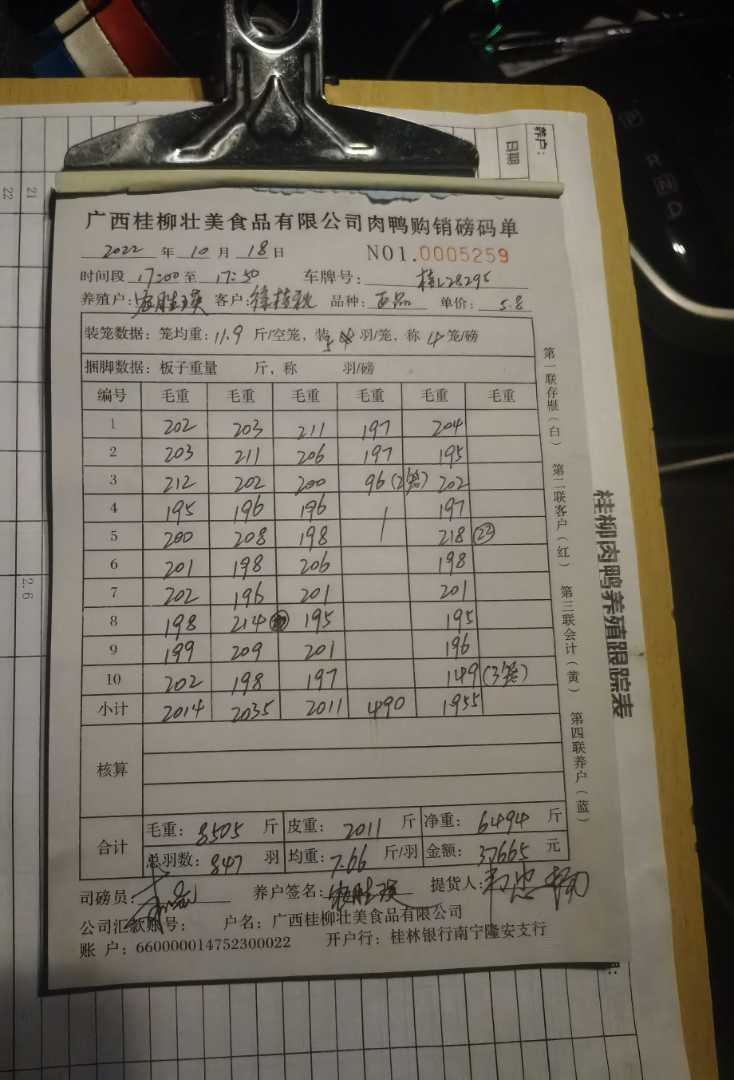 养户：
日期
21
22
2.6
广西桂柳壮美食品有限公司肉鸭购销磅码单
2022 年 10 月 18 日 NO1.0005259
时间段 17:00 至 17:50 车牌号： 桂L28295
养殖户： 客户： 品种： 正品 单价： 5.8
装笼数据：笼均重：11.9 斤/空笼，装 5 羽/笼，称 4 笼/磅
捆脚数据：板子重量 斤，称 羽/磅
编号 毛重 毛重 毛重 毛重 毛重 毛重
1 202 203 211 197 204
2 203 211 206 197 195
3 212 202 200 96(2笼) 202
4 195 196 196 197
5 200 208 198 218 (22)
6 201 198 206 198
7 202 196 201 201
8 198 214 195 195
9 199 209 201 196
10 202 198 197 149 (3笼)
小计 2014 2035 2011 490 1955
核算
合计 毛重： 8505 斤 皮重： 2011 斤 净重： 6494 斤
总羽数： 847 羽 均重： 7.66 斤/羽 金额： 37665 元
司磅员： 养户签名： 提货人：
公司汇款账号： 户名：广西桂柳壮美食品有限公司
账 户：660000014752300022 开户行：桂林银行南宁隆安支行
第一联存根（白）
第二联客户（红）
第三联会计（黄）
第四联养户（蓝）
桂柳肉鸭养殖跟踪表
P
R
N
D